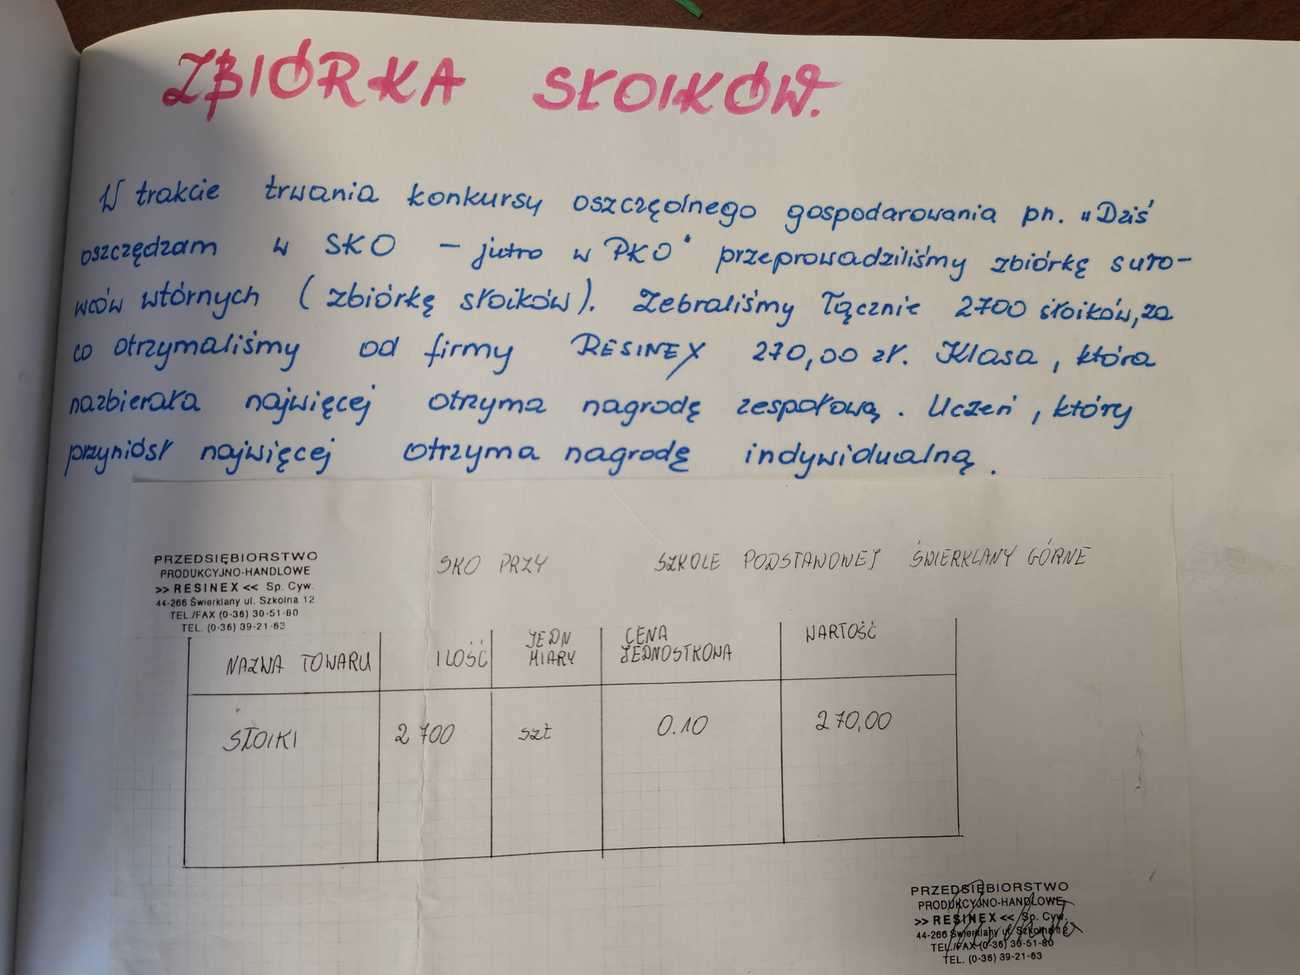 ZBIÓRKA SŁOIKÓW.
W trakcie trwania konkursy oszczędnego gospodarowania pn. "Dziś
oszczędzam w SKO - jutro w PKO" przeprowadziliśmy zbiórkę suro-
wców wtórnych (zbiórkę słoików). Zebraliśmy łącznie 2700 słoików, za
co otrzymaliśmy od firmy RESINEX 270,00 zł. Klasa, która
nazbierała najwięcej otrzyma nagrodę zespołową. Uczeń, który
przyniósł najwięcej otrzyma nagrodę indywidualną.
PRZEDSIĘBIORSTWO
PRODUKCYJNO-HANDLOWE
>> RESINEX << Sp. Cyw.
44-266 Świerklany ul. Szkolna 12
TEL./FAX (0-36) 30-51-80
TEL. (0-36) 39-21-63
SKO PRZY SZKOLE PODSTAWOWEJ ŚWIERKLANY GÓRNE
NAZWA TOWARU
ILOŚĆ
JEDN
MIARY
CENA
JEDNOSTKOWA
WARTOŚĆ
SŁOIKI 2 700 szt 0.10 270,00
PRZEDSIĘBIORSTWO
PRODUKCYJNO-HANDLOWE
>> RESINEX << Sp. Cyw.
44-266 Świerklany ul. Szkolna 12
TEL./FAX (0-36) 30-51-80
TEL. (0-36) 39-21-63